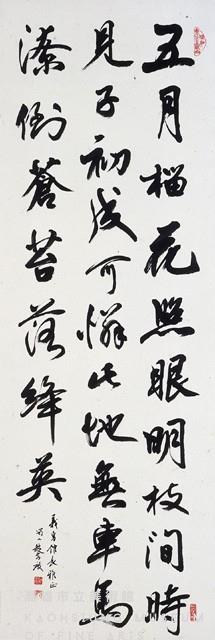 五月榴花照眼明枝間時
見子初成可憐此地無車馬
潦倒蒼苔落絳英
雅正
高雄市立美術館
KAOHSIUNG MUSEUM
OF FINE ARTS